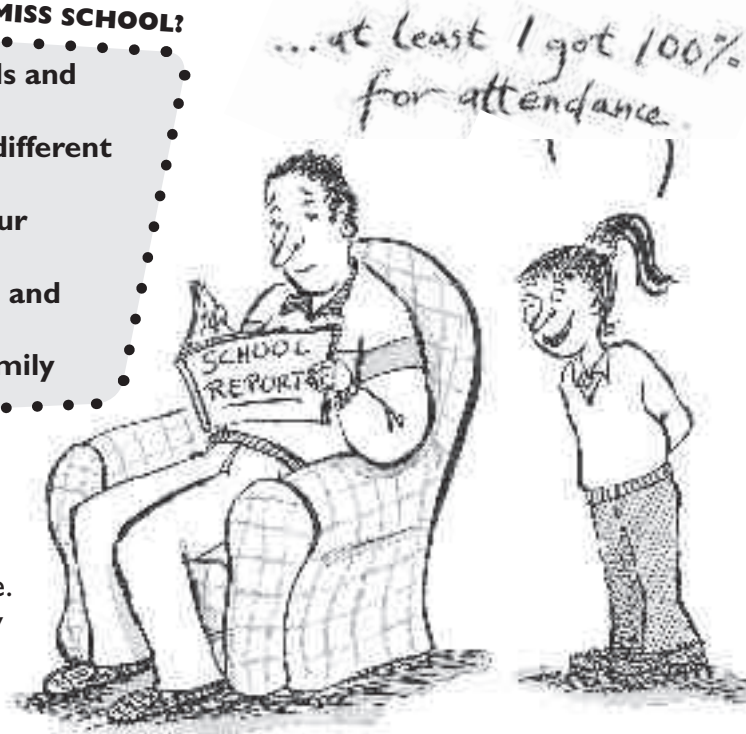 MISS SCHOOL?
ls and
different
ur
and
mily
e.
...at least I got 100%
for attendance.
SCHOOL
REPORT